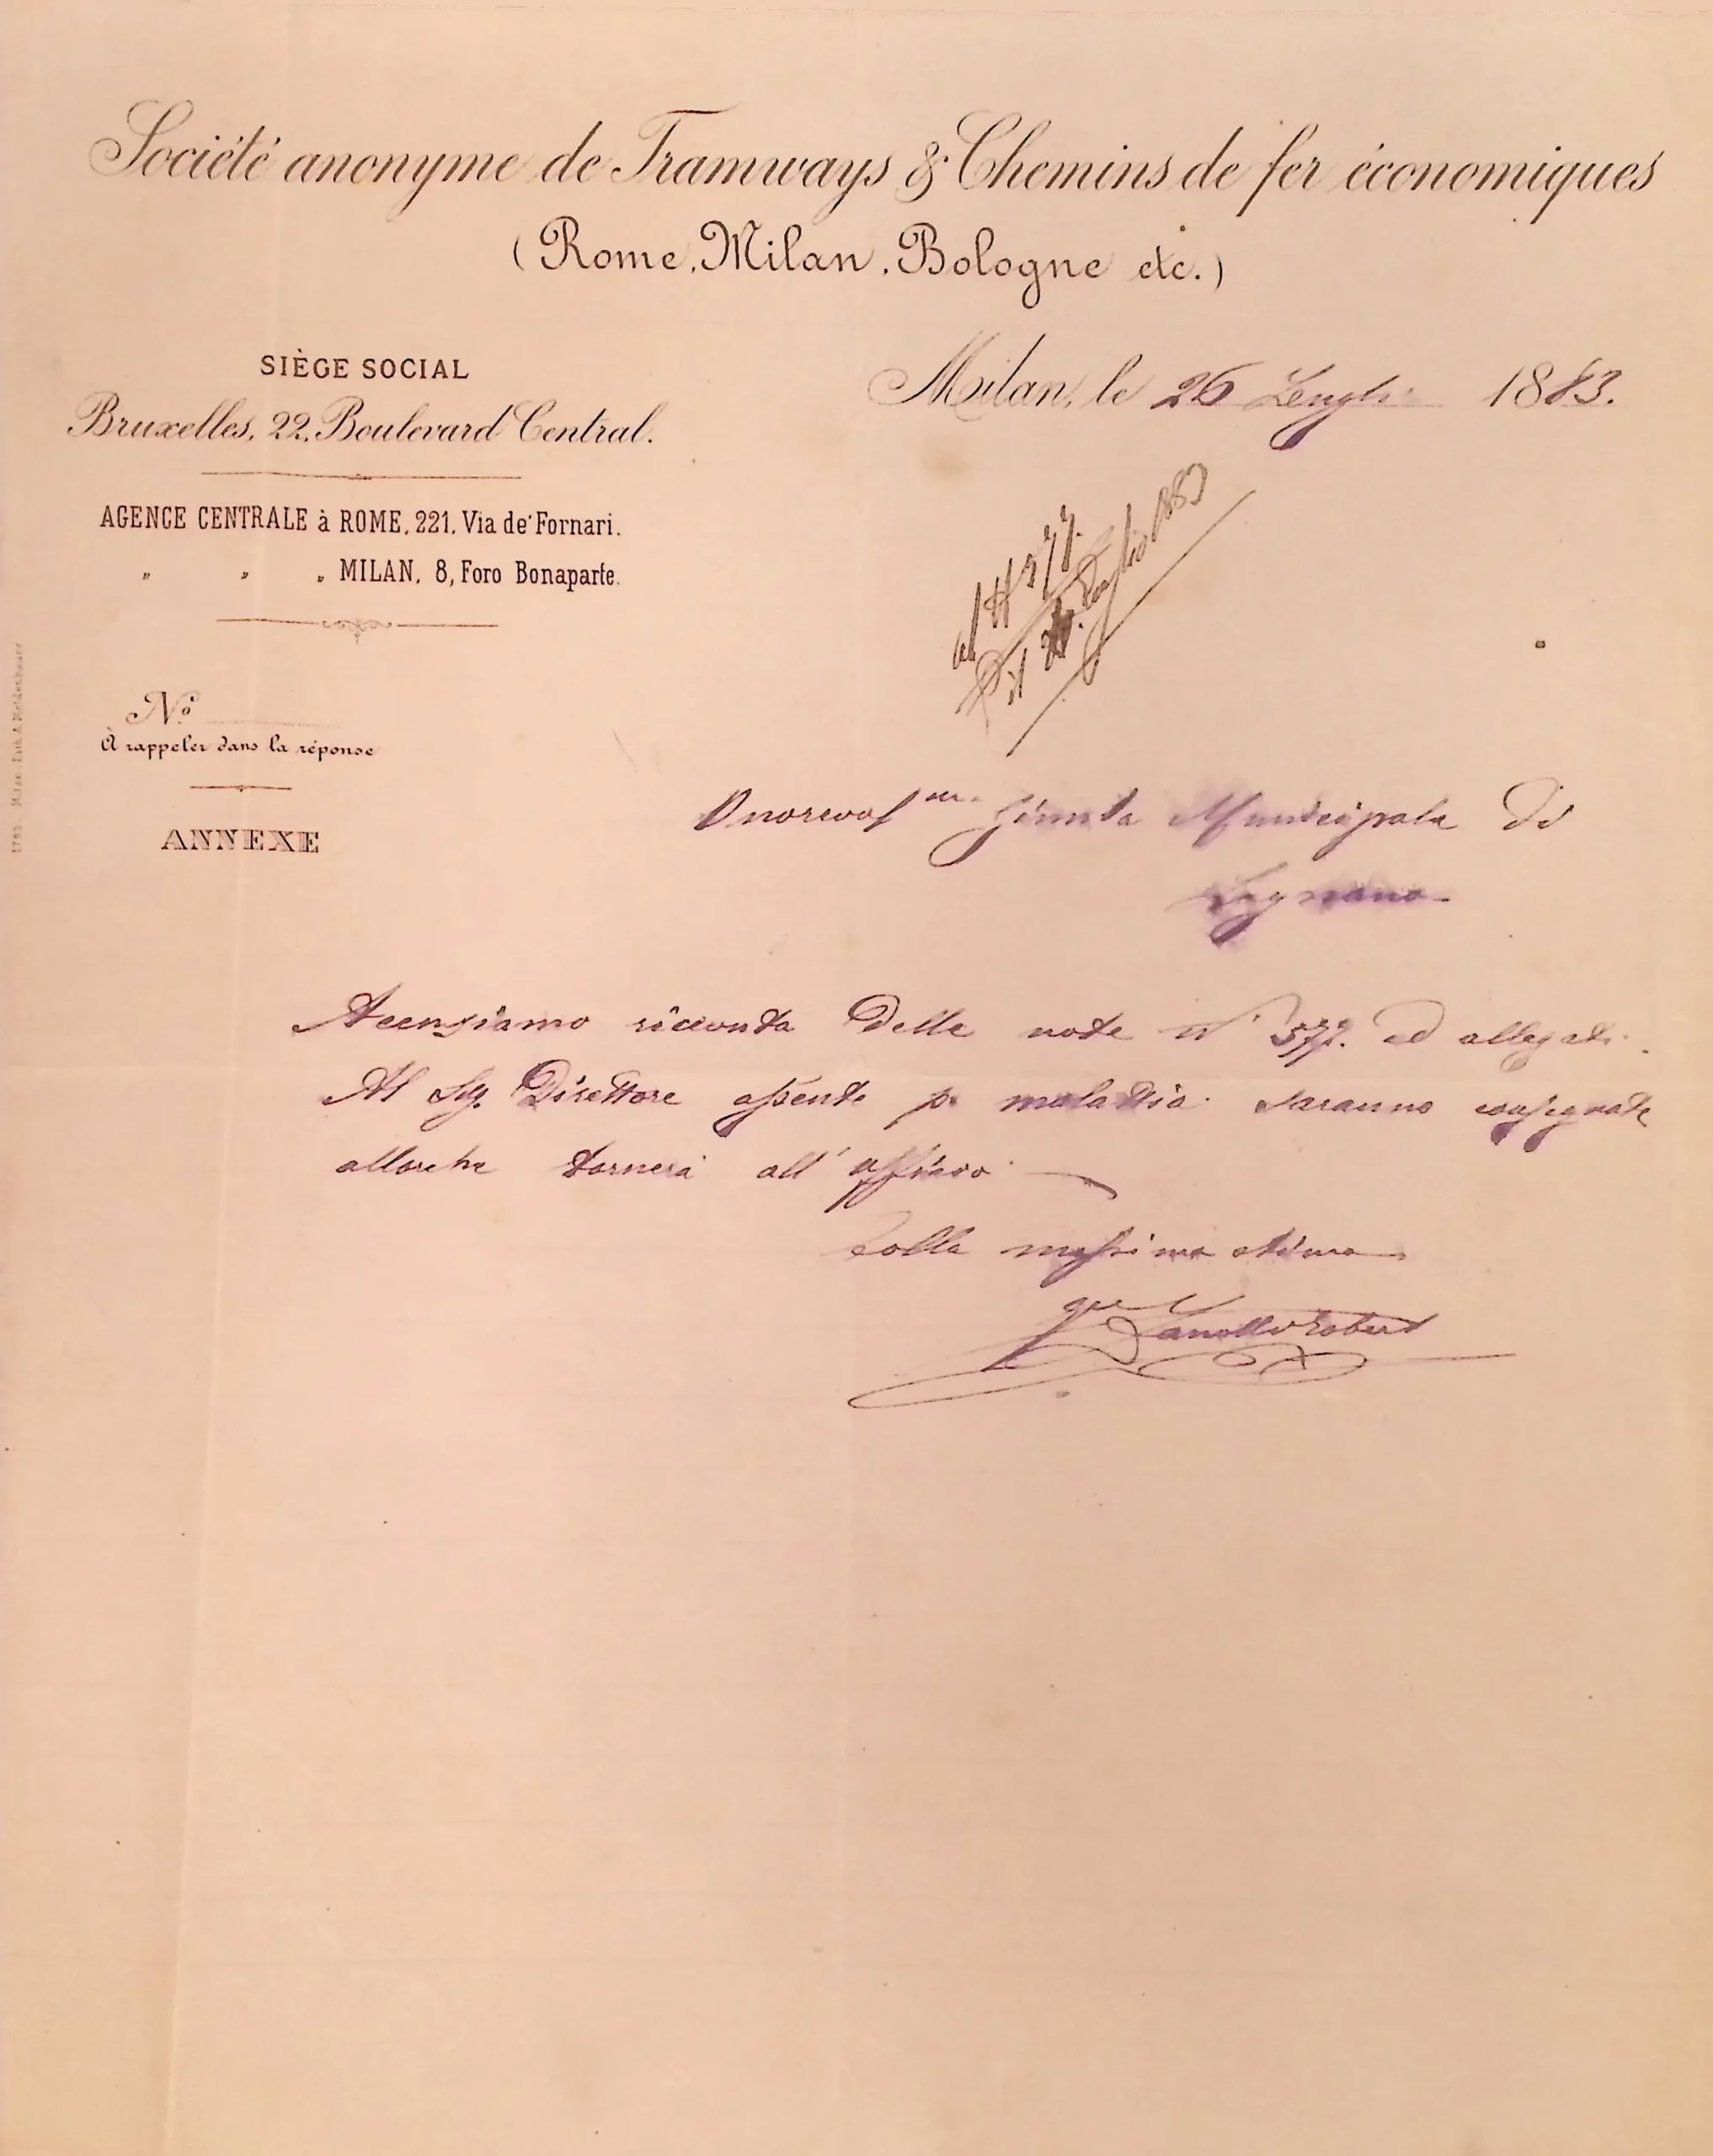 Société anonyme de Tramways & Chemins de fer économiques
(Rome, Milan, Bologne etc.)
SIÈGE SOCIAL
Bruxelles, 22, Boulevard Central.
AGENCE CENTRALE à ROME, 221, Via de' Fornari.
" " " MILAN, 8, Foro Bonaparte.
Milan, le 26 Luglio 1883.
al N 577.
il Luglio 1883
Nº
À rappeler dans la réponse
ANNEXE
Onorevol Giunta Municipale di
Legnano
Accusiamo ricevuta delle note N° 577. ed allegati.
Al Sig. Direttore assente p. malattia saranno consegnate
allorche tornerà all' ufficio
Colla massima stima